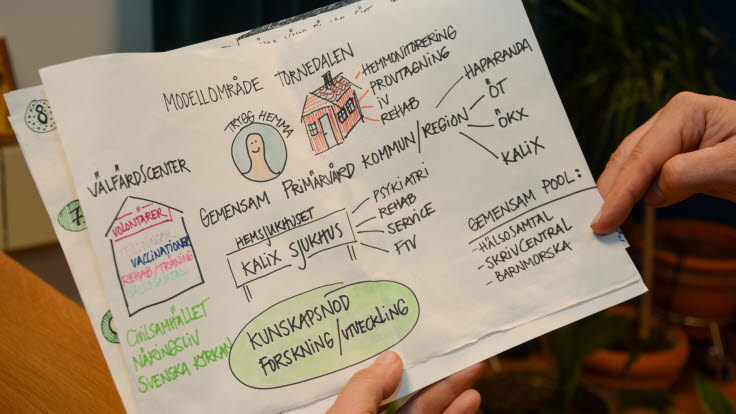 8
MODELLOMRÅDE TORNEDALEN
HEMMONITORERING
PROVTAGNING
IV
REHAB
TRYGG HEMMA
HAPARANDA
ÖT
ÖKX
KALIX
GEMENSAM PRIMÄRVÅRD KOMMUN/REGION
VÄLFÄRDSCENTER
VOLONTÄRER
VACCINATIONER
REHAB/TRÄNING
HÄLSOSAMTAL
CIVILSAMHÄLLET
NÄRINGSLIV
SVENSKA KYRKAN
HEMSJUKHUSET
KALIX SJUKHUS
PSYKIATRI
REHAB
SERVICE
FTV
GEMENSAM POOL:
-HÄLSOSAMTAL
-SKRIVCENTRAL
-BARNMORSKA
KUNSKAPSNOD
FORSKNING/UTVECKLING
7